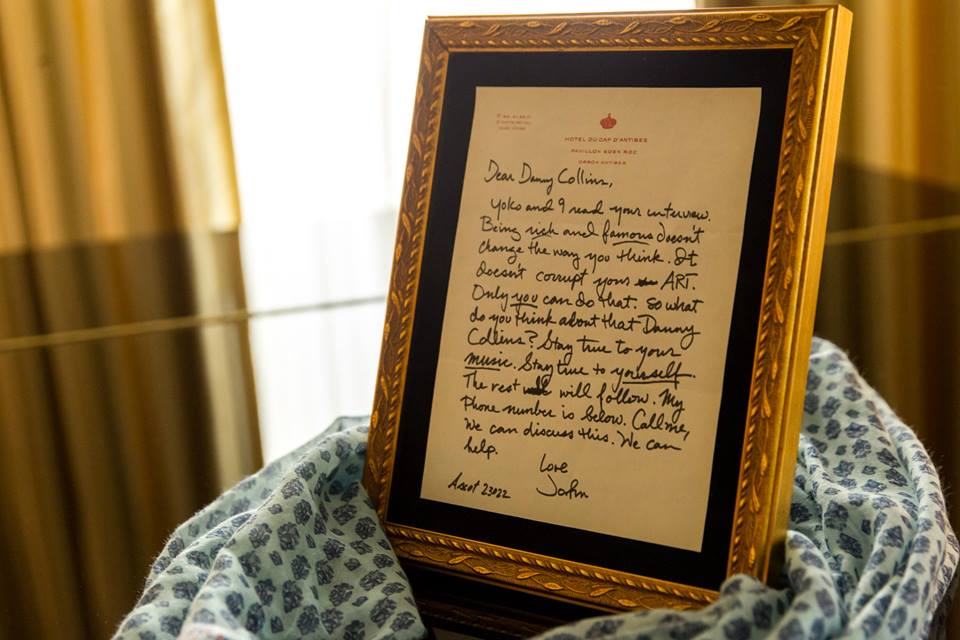 HOTEL DU CAP D'ANTIBES
PAVILLON EDEN ROC
Dear Danny Collins,
Yoko and I read your interview.
Being rich and famous doesn't
change the way you think. It
doesn't corrupt your ART.
Only you can do that. So what
do you think about that Danny
Collins? Stay true to your
music. Stay true to yourself.
The rest will follow. My
Phone number is below. Call me,
We can discuss this. We can
help.
Love
John
Ascot 23022